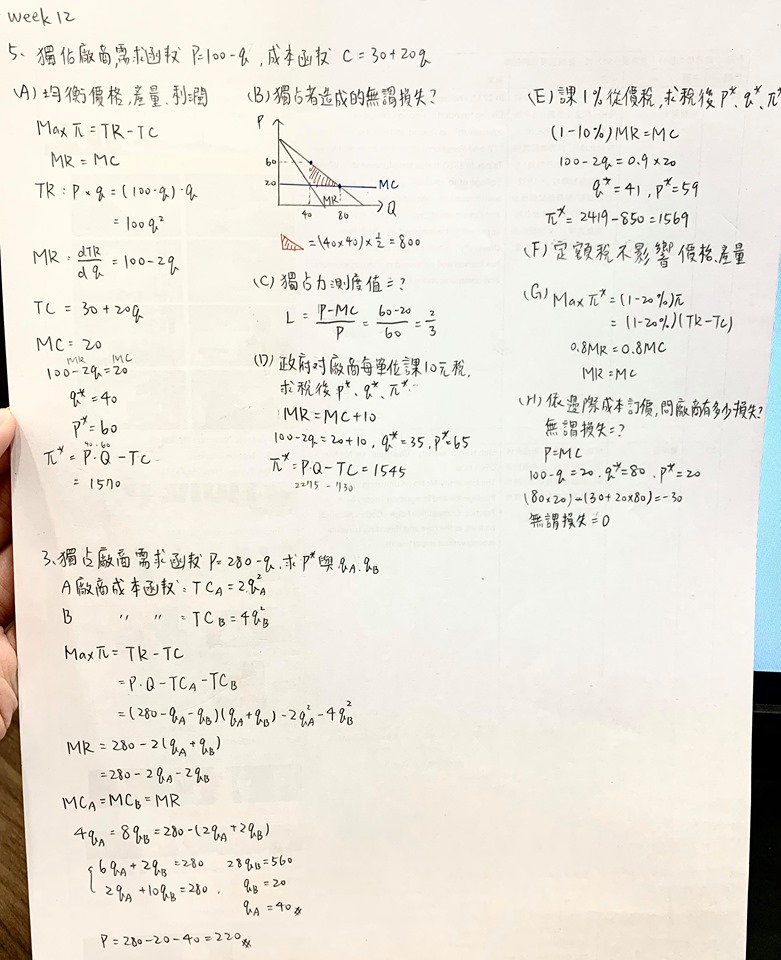 week 12
5、獨佔廠商,需求函數 P=100-q,成本函數 C=30+20q
(A)均衡價格,產量、利潤
Max π=TR-TC
MR=MC
TR:P×q=(100-q)·q
=100q²
MR:dTR/dq=100-2q
TC=30+20q
MC=20
MR MC
100-2q=20
q*=40
P*=60
40·60
π*=P·Q-TC
=1570
(B)獨占者造成的無謂損失?
P
60
20
MC
MR
40 80 Q
=(40×40)×½=800
(C)獨占力測度值=?
L=(P-MC)/P=(60-20)/60=2/3
(D)政府対廠商每單位課10元稅,
求稅後p*、q*、π*
MR=MC+10
100-2q=20+10,q*=35,p*=65
π*=P·Q-TC=1545
2275-730
(E)課1%從價稅,求稅後p*、q*、π*
(1-10%)MR=MC
100-2q=0.9×20
q*=41,p*=59
π*=2419-850=1569
(F)定額稅不影響價格、產量
(G)Max π*=(1-20%)π
=(1-20%)(TR-TC)
0.8MR=0.8MC
MR=MC
(H)依邊際成本訂價,問廠商有多少損失?
無謂損失=?
P=MC
100-q=20,q*=80,p*=20
(80×20)-(30+20×80)=-30
無謂損失=0
3、獨占廠商需求函數 P=280-q,求P*與qA、qB
A廠商成本函數:TCA=2qA²
B 〃 〃 =TCB=4qB²
Max π=TR-TC
=P·Q-TCA-TCB
=(280-qA-qB)(qA+qB)-2qA²-4qB²
MR=280-2(qA+qB)
=280-2qA-2qB
MCA=MCB=MR
4qA=8qB=280-(2qA+2qB)
6qA+2qB=280 28qB=560
2qA+10qB=280. qB=20
qA=40
P=280-20-40=220